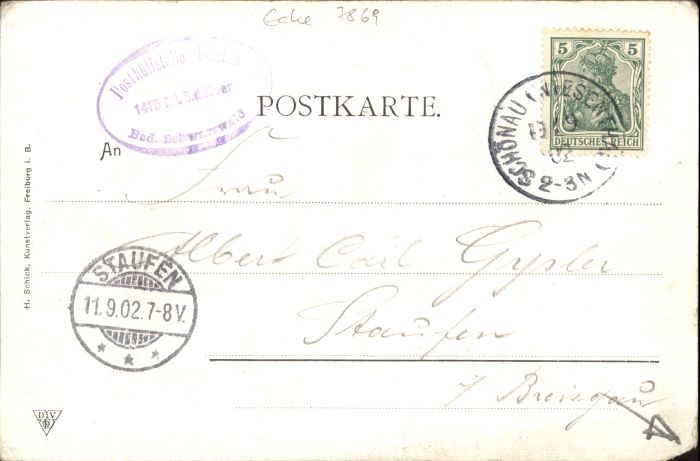 Ecke 7869
Posthülfstelle Belchen
1415 Mt. ü. d. Meer
Bad. Schwarzwald
5 5
DEUTSCHES REICH
SCHÖNAU (WIESENTHAL)
02
2-3N
POSTKARTE.
An
Frau
Albert Carl Gysler
Staufen
i/ Breisgau
STAUFEN
11.9.02.7-8V.
H. Schick, Kunstverlag, Freiburg i. B.
DIV